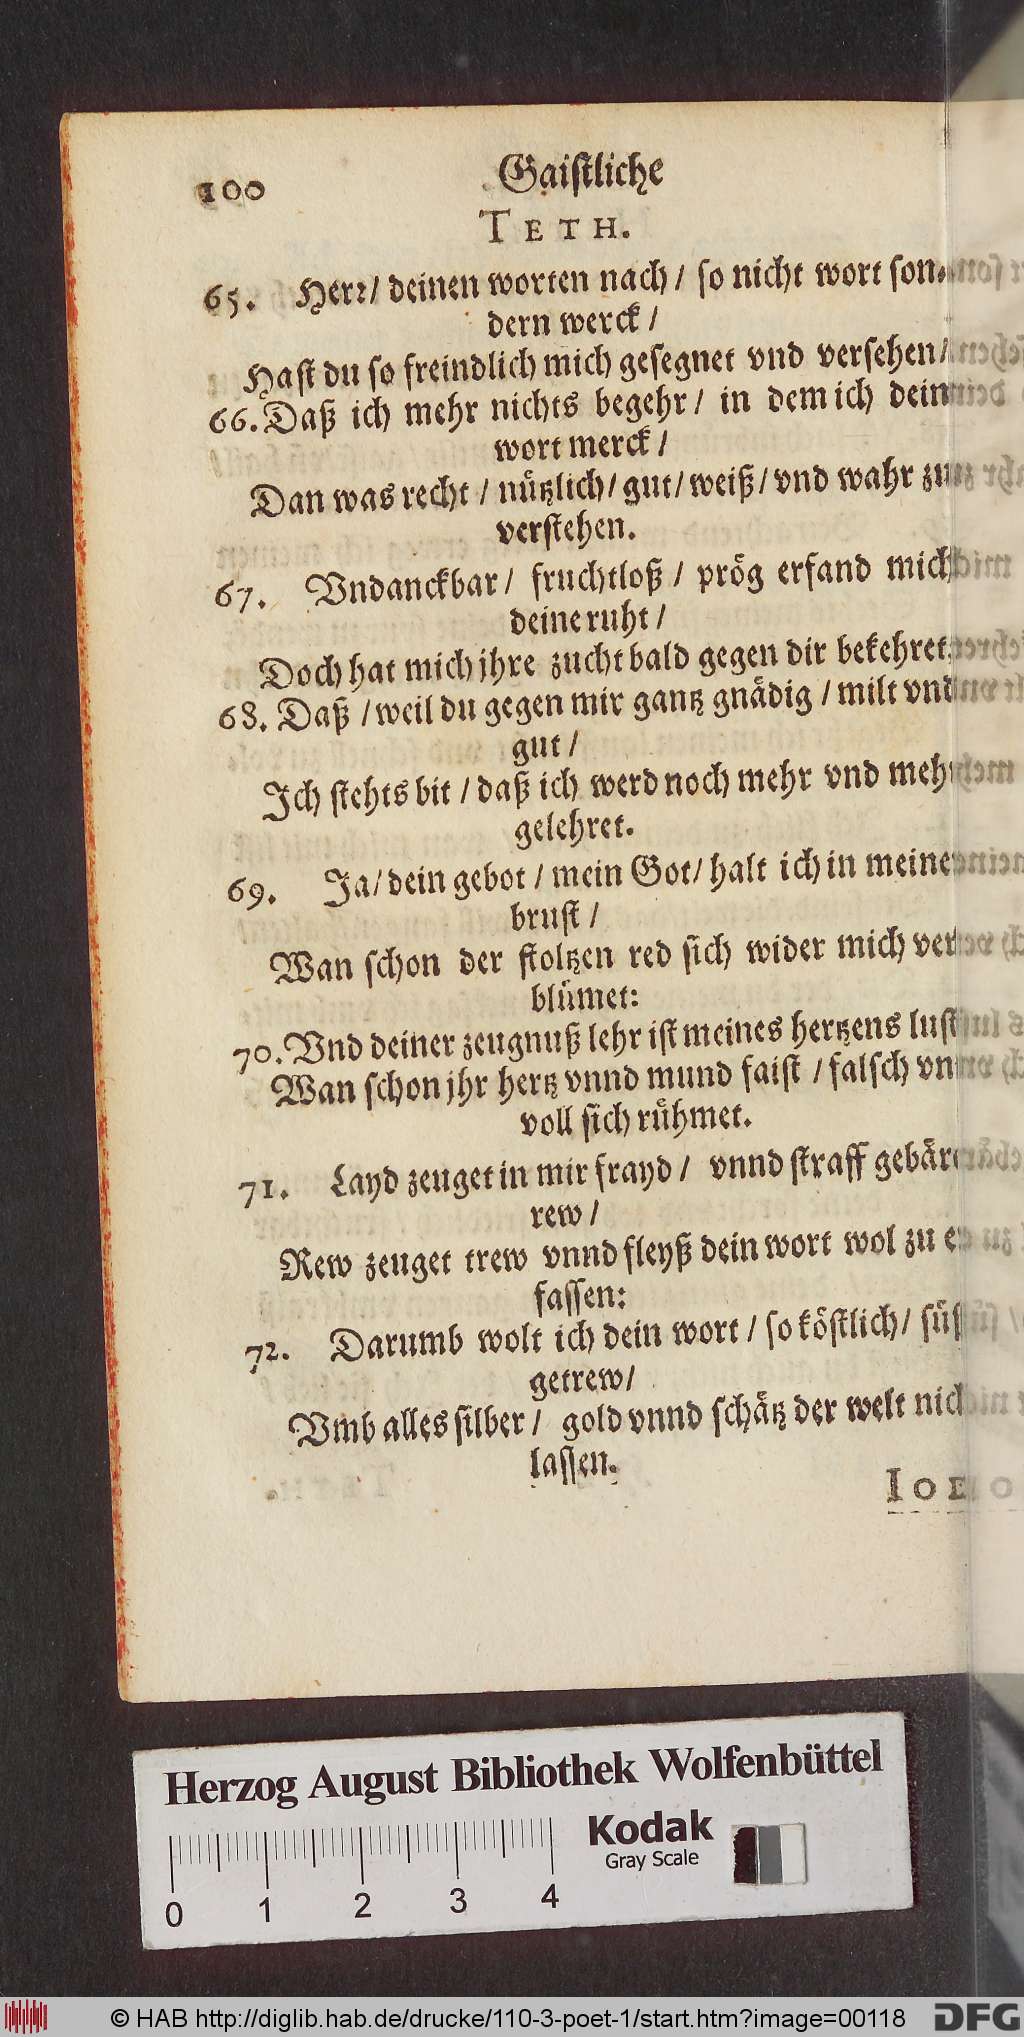 100 Gaistliche
TETH.
65. Herr/ deinen worten nach/ so nicht wort son-
dern werck/
Hast du so freindlich mich gesegnet vnd versehen/
66. Daß ich mehr nichts begehr/ in dem ich dein
wort merck/
Dan was recht/ nützlich/ gut/ weiß/ vnd wahr zu
verstehen.
67. Vndanckbar/ fruchtloß/ prög erfand mich
deine ruht/
Doch hat mich jhre zucht bald gegen dir bekehret,
68. Daß/ weil du gegen mir gantz gnädig/ milt vnd
gut/
Ich stehts bit/ daß ich werd noch mehr vnd mehr
gelehret.
69. Ja/ dein gebot/ mein Got/ halt ich in meiner
brust/
Wan schon der stoltzen red sich wider mich ver-
blümet:
70. Vnd deiner zeugnuß lehr ist meines hertzens lust
Wan schon jhr hertz vnnd mund faist/ falsch vn
voll sich rühmet.
71. Layd zeuget in mir frayd/ vnnd straff gebäret
rew/
Rew zeuget trew vnnd fleyß dein wort wol zu
fassen:
72. Darumb wolt ich dein wort/ so köstlich/ süß
getrew/
Vmb alles silber/ gold vnnd schätz der welt nicht
lassen.
Herzog August Bibliothek Wolfenbüttel
Kodak
Gray Scale
0 1 2 3 4
© HAB http://diglib.hab.de/drucke/110-3-poet-1/start.htm?image=00118
DFG